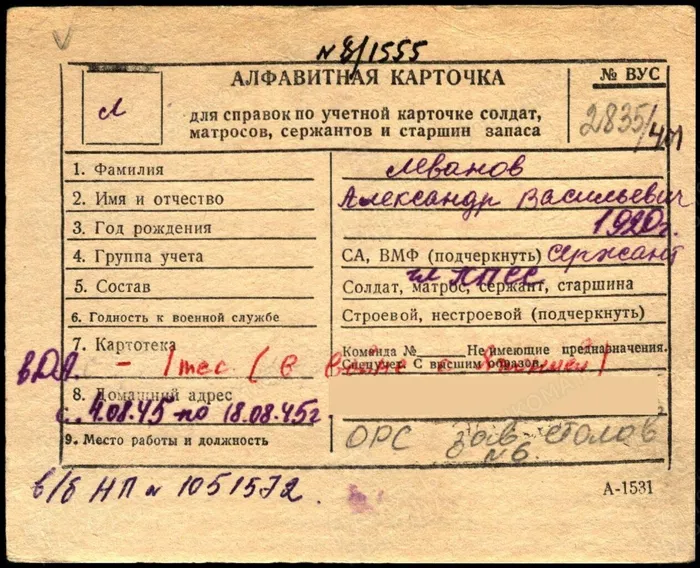 N 8/1555
АЛФАВИТНАЯ КАРТОЧКА
для справок по учетной карточке солдат,
матросов, сержантов и старшин запаса
№ ВУС
2835/
л
1. Фамилия
Леванов
2. Имя и отчество
Александр Васильевич
3. Год рождения
1920г.
4. Группа учета
СА, ВМФ (подчеркнуть) сержант
5. Состав
чл КПСС
Солдат, матрос, сержант, старшина
6. Годность к военной службе
Строевой, нестроевой (подчеркнуть)
7. Картотека
Команда №
Не имеющие предназначения.
Спецучет. С высшим образов.
в Д.А. - 1 мес. (в войне с Японией)
8. Домашний адрес
с 4.08.45 по 18.08.45г
9. Место работы и должность
ОРС зав-столов
N6.
в/б НП N 1051572.
А-1531